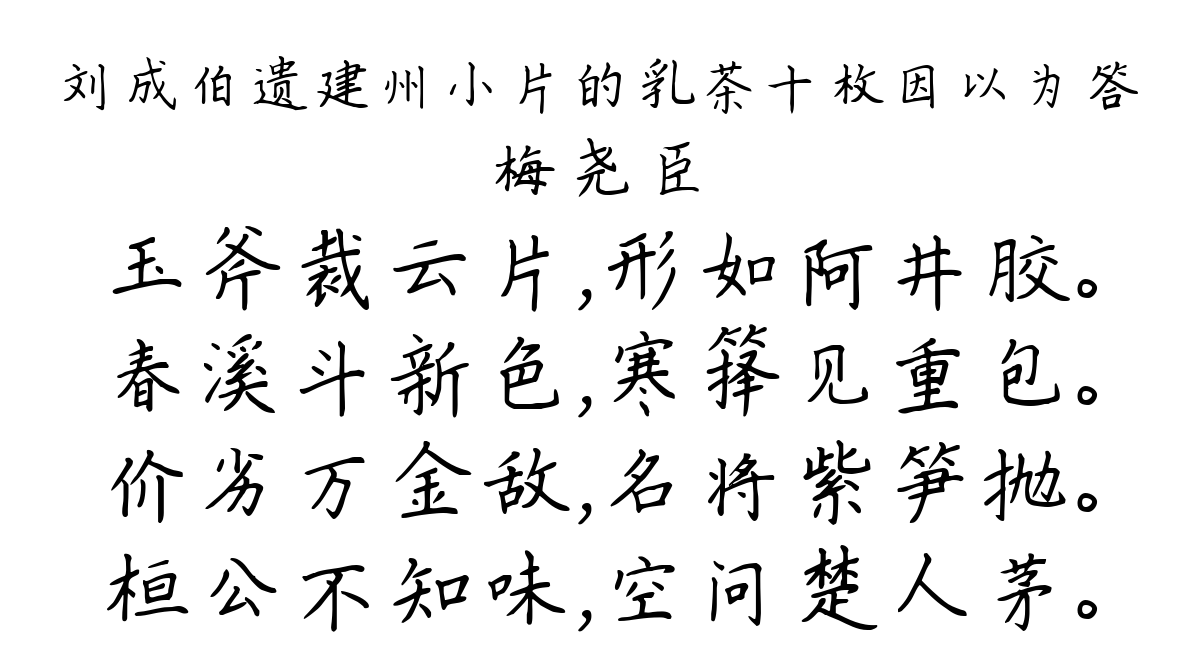 刘成伯遗建州小片的乳茶十枚因以为答
梅尧臣
玉斧裁云片,形如阿井胶。
春溪斗新色,寒箨见重包。
价劣万金敌,名将紫笋抛。
桓公不知味,空问楚人茅。